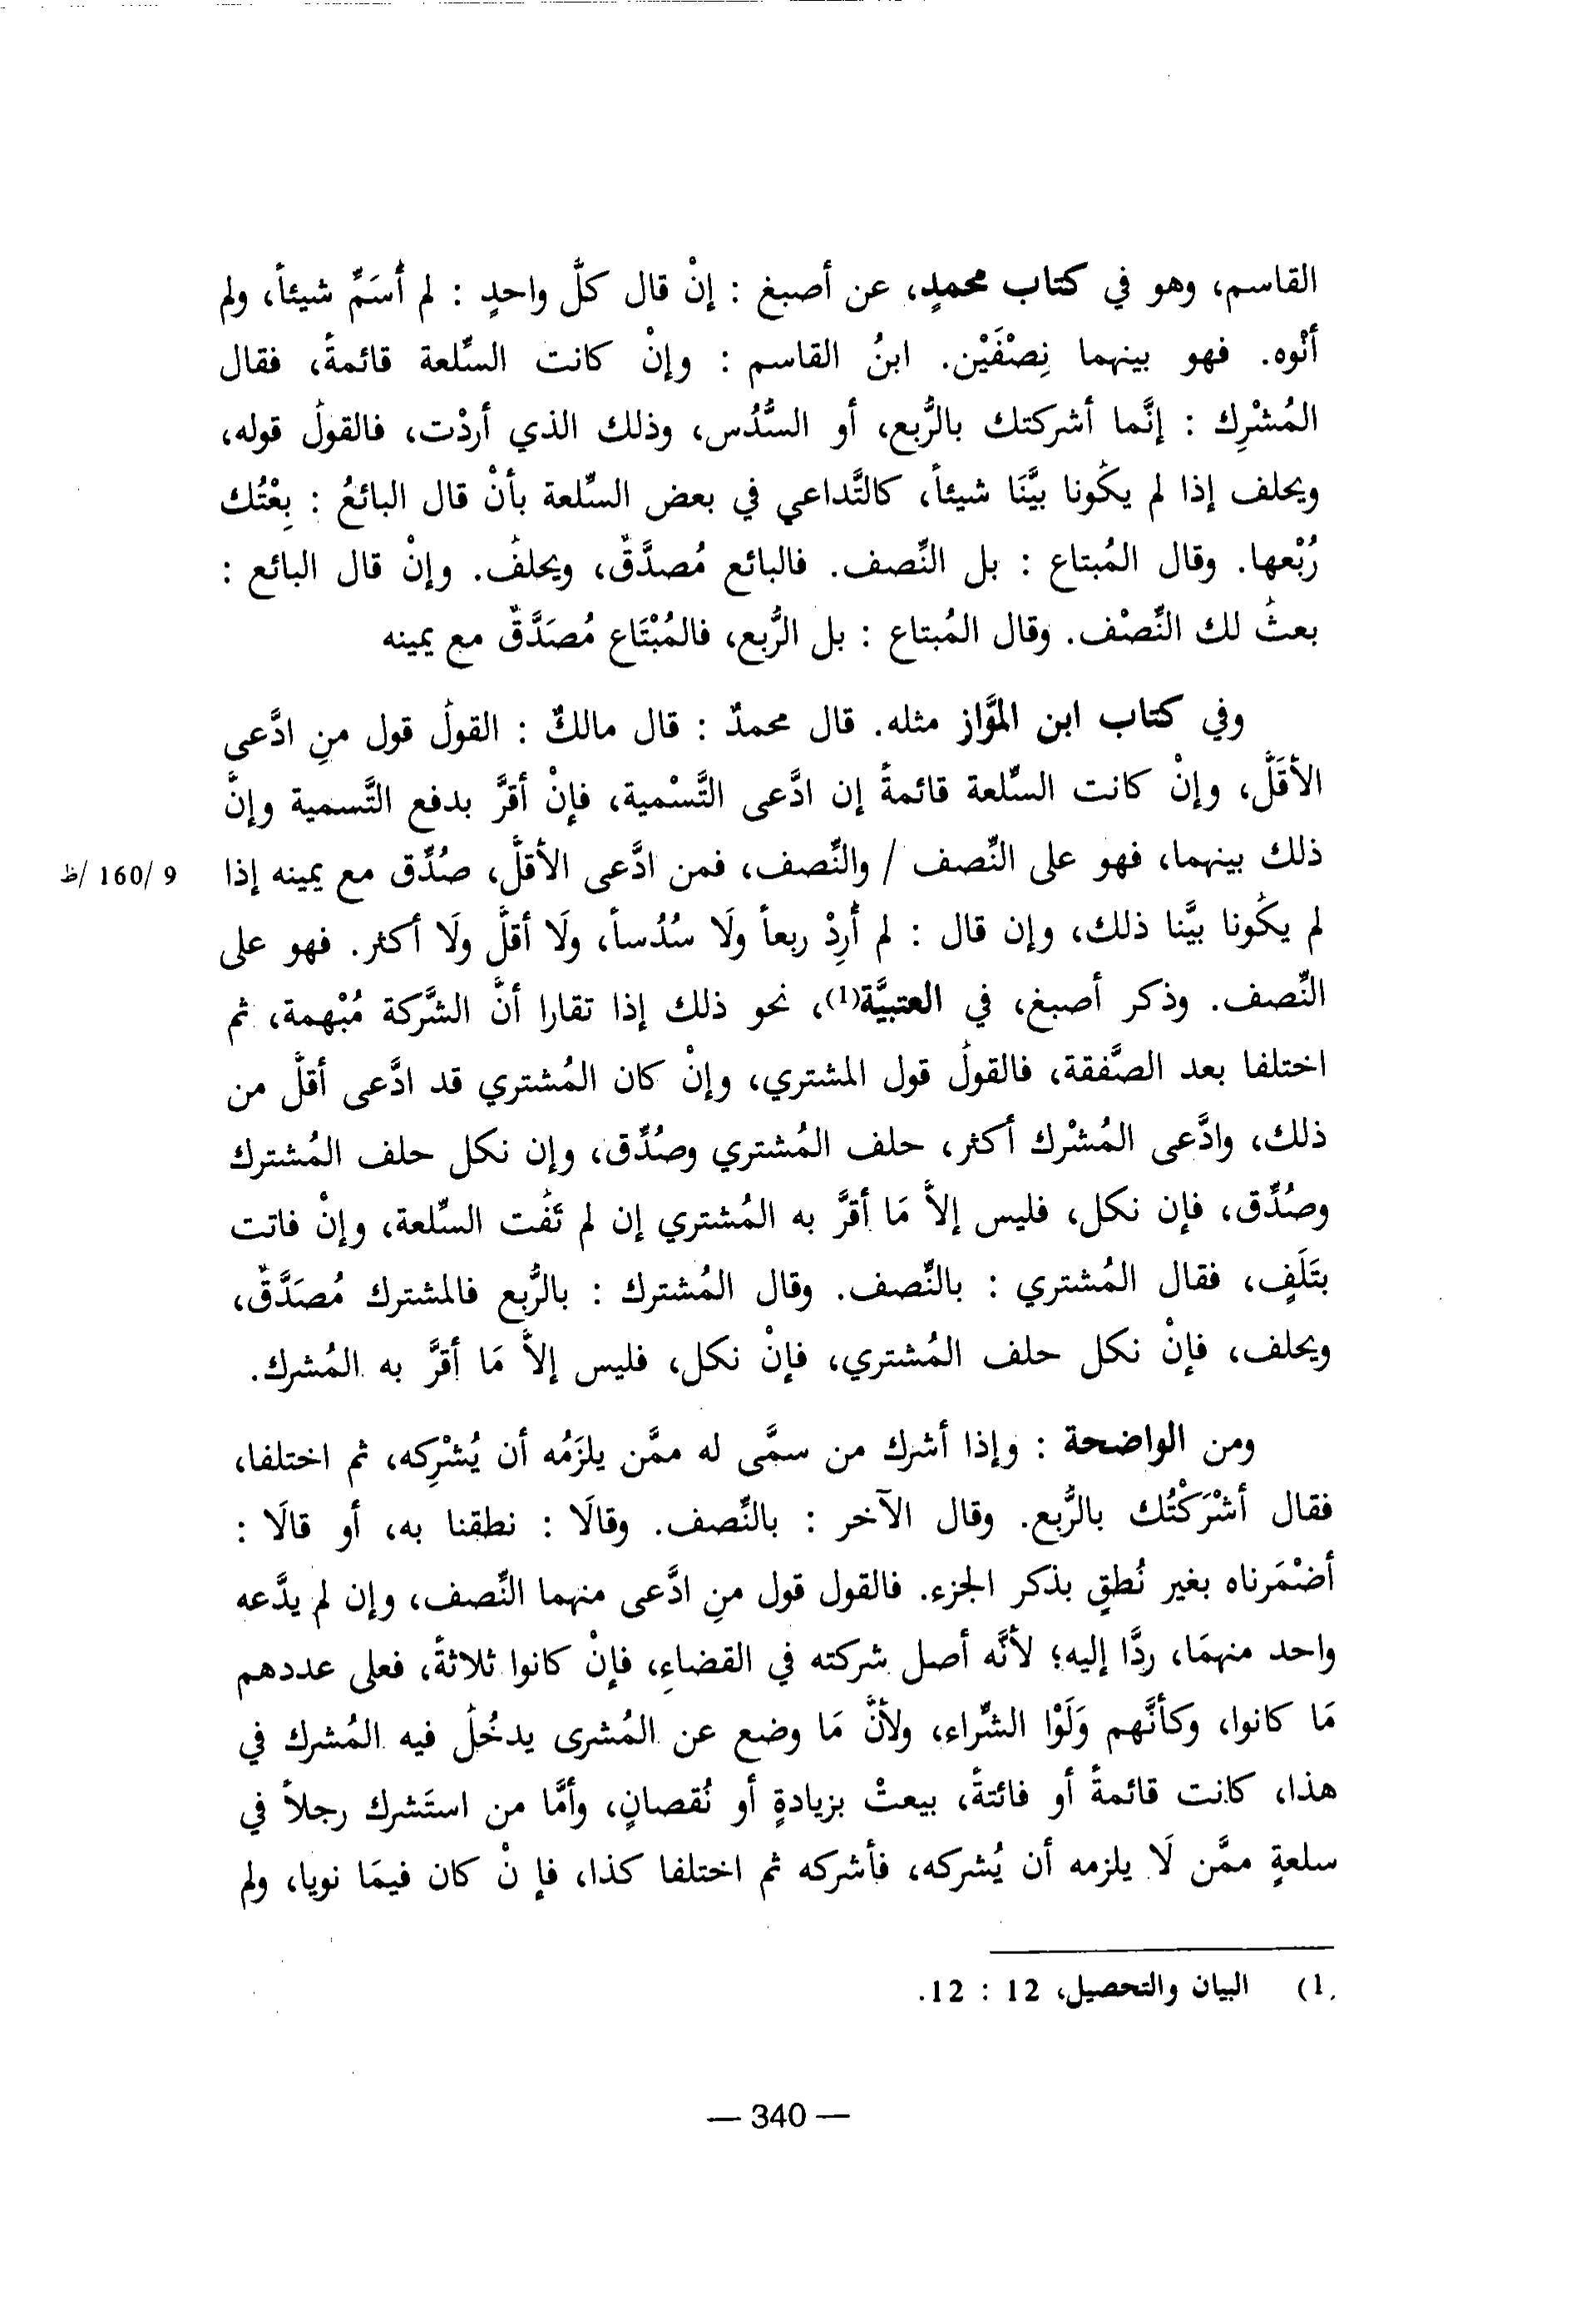 القاسم، وهو في كتاب محمدٍ، عن أصبغ : إنْ قال كلُّ واحدٍ : لم أُسَمِّ شيئاً، ولم
أنْوه. فهو بينهما نِصْفَيْن. ابنُ القاسم : وإنْ كانت السِّلعة قائمةً، فقال
المُشْرِك : إنَّما أشركتك بالرُّبع، أو السُّدُس، وذلك الذي أردْت، فالقولُ قوله،
ويحلف إذا لم يكُونا بيَّنَا شيئاً، كالتَّداعي في بعض السِّلعة بأنْ قال البائعُ : بِعْتُك
رُبْعها. وقال المُبتاع : بل النِّصف. فالبائع مُصدَّقٌ، ويحلفُ. وإنْ قال البائع :
بعتُ لك النِّصْف. وقال المُبتاع : بل الرُّبع، فالمُبْتَاع مُصَدَّقٌ مع يمينه
وفي كتاب ابن الموَّاز مثله. قال محمدٌ : قال مالكٌ : القولُ قول منِ ادَّعى
الأقَلَّ، وإنْ كانت السِّلعة قائمةً إن ادَّعى التَّسْمية، فإنْ أقرَّ بدفع التَّسمية وإنَّ
ذلك بينهما، فهو على النِّصف / والنِّصف، فمن ادَّعى الأقلَّ، صُدِّق مع يمينه إذا
9 /160 /ظ
لم يكُونا بيَّنا ذلك، وإن قال : لم أُرِدْ ربعاً ولَا سُدُساً، ولَا أقلَّ ولَا أكثر. فهو على
النِّصف. وذكر أصبغ، في العتبيَّة(1)، نحو ذلك إذا تقارا أنَّ الشَّركة مُبْهمة، ثم
اختلفا بعد الصَّفقة، فالقولُ قول المشتري، وإنْ كان المُشتري قد ادَّعى أقلَّ من
ذلك، وادَّعى المُشْرك أكثر، حلف المُشتري وصُدِّق، وإن نكل حلف المُشترك
وصُدِّق، فإن نكل، فليس إلاَّ مَا أقرَّ به المُشتري إن لم تَفُت السِّلعة، وإنْ فاتت
بتَلَفٍ، فقال المُشتري : بالنِّصف. وقال المُشترك : بالرُّبع فالمشترك مُصَدَّقٌ،
ويحلف، فإنْ نكل حلف المُشتري، فإنْ نكل، فليس إلاَّ مَا أقرَّ به المُشرك.
ومن الواضحة : وإذا أشرك من سمَّى له ممَّن يلزَمُه أن يُشْرِكه، ثم اختلفا،
فقال أشْرَكْتُك بالرُّبع. وقال الآخر : بالنِّصف. وقالَا : نطقنا به، أو قالَا :
أضْمَرناه بغير نُطقٍ بذكر الجزء. فالقول قول منِ ادَّعى منهما النِّصف، وإن لم يدَّعه
واحد منهمَا، ردَّا إليه؛ لأنَّه أصل شركته في القضاءِ، فإنْ كانوا ثلاثةً، فعلى عددهم
مَا كانوا، وكأنَّهم وَلَوْا الشِّراء، ولأنَّ مَا وضع عن المُشرى يدخُلُ فيه المُشرك في
هذا، كانت قائمةً أو فائتةً، بيعتْ بزيادةٍ أو نُقصانٍ، وأمَّا من استَشرك رجلاً في
سلعةٍ ممَّن لَا يلزمه أن يُشركه، فأشركه ثم اختلفا كذا، فإ نْ كان فيمَا نويا، ولم
1) البيان والتحصيل، 12 : 12.
— 340 —